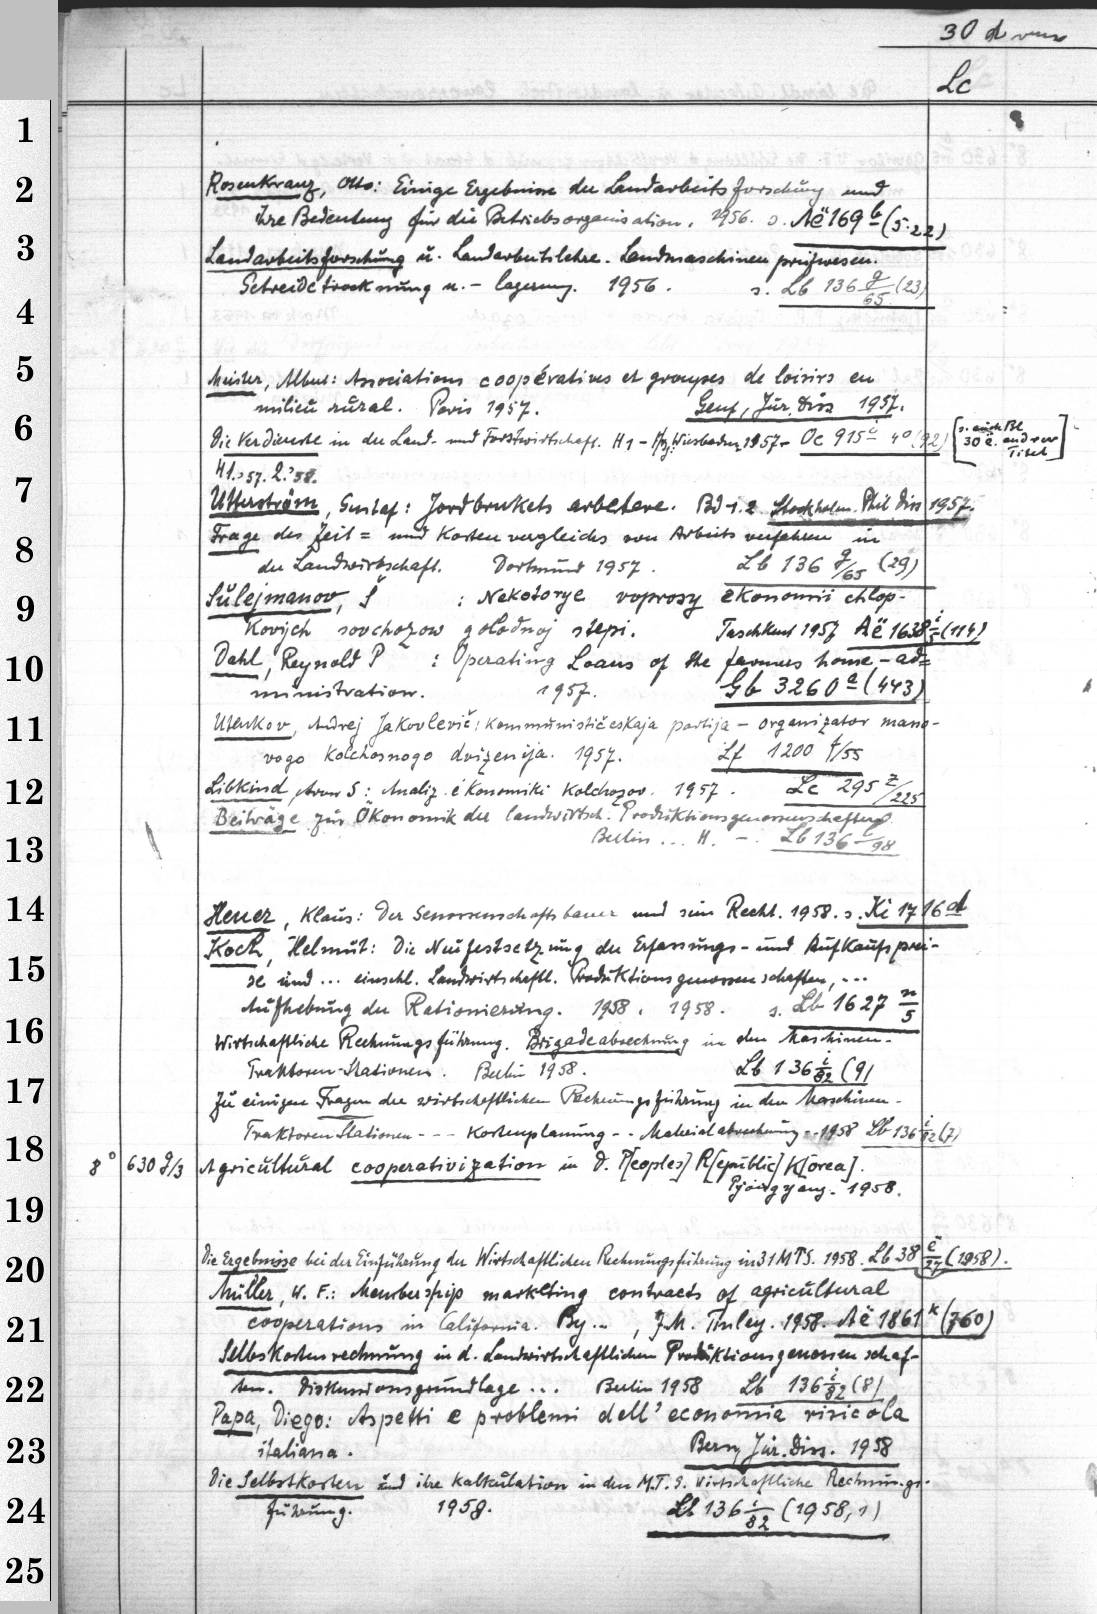 30
Lc
1
2
3
4
5
6
7
8
9
10
11
12
13
14
15
16
17
18
19
20
21
22
23
24
25
Rosenkranz, Otto: Einige Ergebnisse der Landarbeitsforschung und
ihre Bedeutung für die Betriebsorganisation. 1956. s. Aë 169 b (5.22)
Landarbeitsforschung u. Landarbeitslehre. Landmaschinenprüfwesen.
Getreidetrocknung u. - lagerung. 1956. s. Lb 136 g/65 (23)
Meister, Albert: Associations coopératives et groupes de loisirs en
milieu rural. Paris 1957. Genf, Jur. Diss 1957.
Die Verdienste in der Land- und Forstwirtschaft. H 1 - Wiesbaden 1957- Oc 915 4° (92) [s. auch Bl. 30 a. anderer Titel]
H 1.?57. 2.?58.
Utterström, Gustaf: Jordbrukets arbetare. Bd 1.2 Stockholm. Phil Diss 1957.
Frage des Zeit= und Kostenvergleichs von Arbeitsverfahren in
der Landwirtschaft. Dortmund 1957. Lb 136 g/65 (29)
Sulejmanov, Š : Nekotorye voprosy ekonomii chlop-
kovych sovchozow golodnoj stepi. Taschkent 1957 Aë 1638 i/5 (114)
Dahl, Reynold P : Operating Loans of the farmers home-ad=
ministration. 1957. Gb 3260 a (443)
Utenkov, Andrej Jakovlevič: Kommunističeskaja partija - organizator masso-
vogo kolchosnogo dviženija. 1957. Lf 1200 f/55
Libkind, Aron S: Analiz ėkonomiki kolchozov. 1957. Lc 295 z/225
Beiträge zur Ökonomik der landwirtsch. Produktionsgenossenschaften
Berlin ... H. -. Lb 136 l/98
Heuer, Klaus: Der Genossenschaftsbauer und sein Recht. 1958. s. Ki 1716 d
Koch, Helmut: Die Neufestsetzung der Erfassungs- und Aufkaufsprei-
se und ... einschl. Landwirtschaftl. Produktionsgenossenschaften, ...
Aufhebung der Rationierung. 1958. 1958. s. Lb 1627 n/5
Wirtschaftliche Rechnungsführung. Brigadeabrechnung in den Maschinen-
Traktoren-Stationen. Berlin 1958. Lb 136 i/82 (9)
Zu einigen Fragen der wirtschaftlichen Rechnungsführung in den Maschinen-
Traktoren Stationen --- Kostenplanung -- Materialabrechnung -- 1958 Lb 136 i/82 (7)
8° 630 g/3 Agricultural cooperativization in D. P[eoples] R[epublic] K[orea].
Pjöngyang. 1958.
Die Ergebnisse bei der Einführung der Wirtschaftlichen Rechnungsführung in 31 MTS. 1958. Lb 38 ë/27 (1958).
Müller, W. F.: Membership marketing contracts of agricultural
cooperations in California. By ..., J. M. Tinley. 1958. Aë 1861 k (760)
Selbskostenrechnung in d. Landwirtschaftlichen Produktionsgenossenschaf-
ten. Diskussionsgrundlage ... Berlin 1958 Lb 136 i/82 (8)
Papa, Diego: Aspetti e problemi dell'economia risicola
italiana. Bern, Jur. Diss. 1958
Die Selbstkosten und ihre Kalkulation in den M.T.S. Wirtschaftliche Rechnungs-
führung. 1958. Lb 136 i/82 (1958,1)